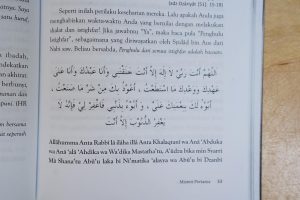 dekatkan
berharap
bersama
sepenuh
(51): 15-18)
Seperti inilah perilaku mereka. Lalu apakah Anda juga
menghabiskan waktu-waktu Anda yang bernilai dengan
dzikir dan istighfar? Jika jawabmu "Ya", maka baca pula "Penghulu
istighfar", sebagaimana yang diriwayatkan oleh Syidad bin Aus dari
Nabi saw. Beliau bersabda, Penghulu dari semua istighfar adalah bacaan:
اَللّٰهُمَّ أَنْتَ رَبِّيْ لَا إِلٰهَ إِلَّا أَنْتَ خَلَقْتَنِيْ وَأَنَا عَبْدُكَ وَأَنَا عَلَى
عَهْدِكَ وَوَعْدِكَ مَا اسْتَطَعْتُ ، أَعُوْذُ بِكَ مِنْ شَرِّ مَا صَنَعْتُ ،
أَبُوْءُ لَكَ بِنِعْمَتِكَ عَلَيَّ ، وَأَبُوْءُ بِذَنْبِيْ فَاغْفِرْ لِيْ فَإِنَّهُ لَا
يَغْفِرُ الذُّنُوْبَ إِلَّا أَنْتَ
Allâhumma Anta Rabbî lâ ilâha illâ Anta Khalaqtanî wa Anâ 'Abduka
wa Anâ 'alâ 'Ahdika wa Wa'dika Mastatha'tu, A'ûdzu bika min Syarri
Mâ Shana'tu Abû'u laka bi Ni'matika 'alayya wa Abû'u bi Dzanbî
Pertama 53